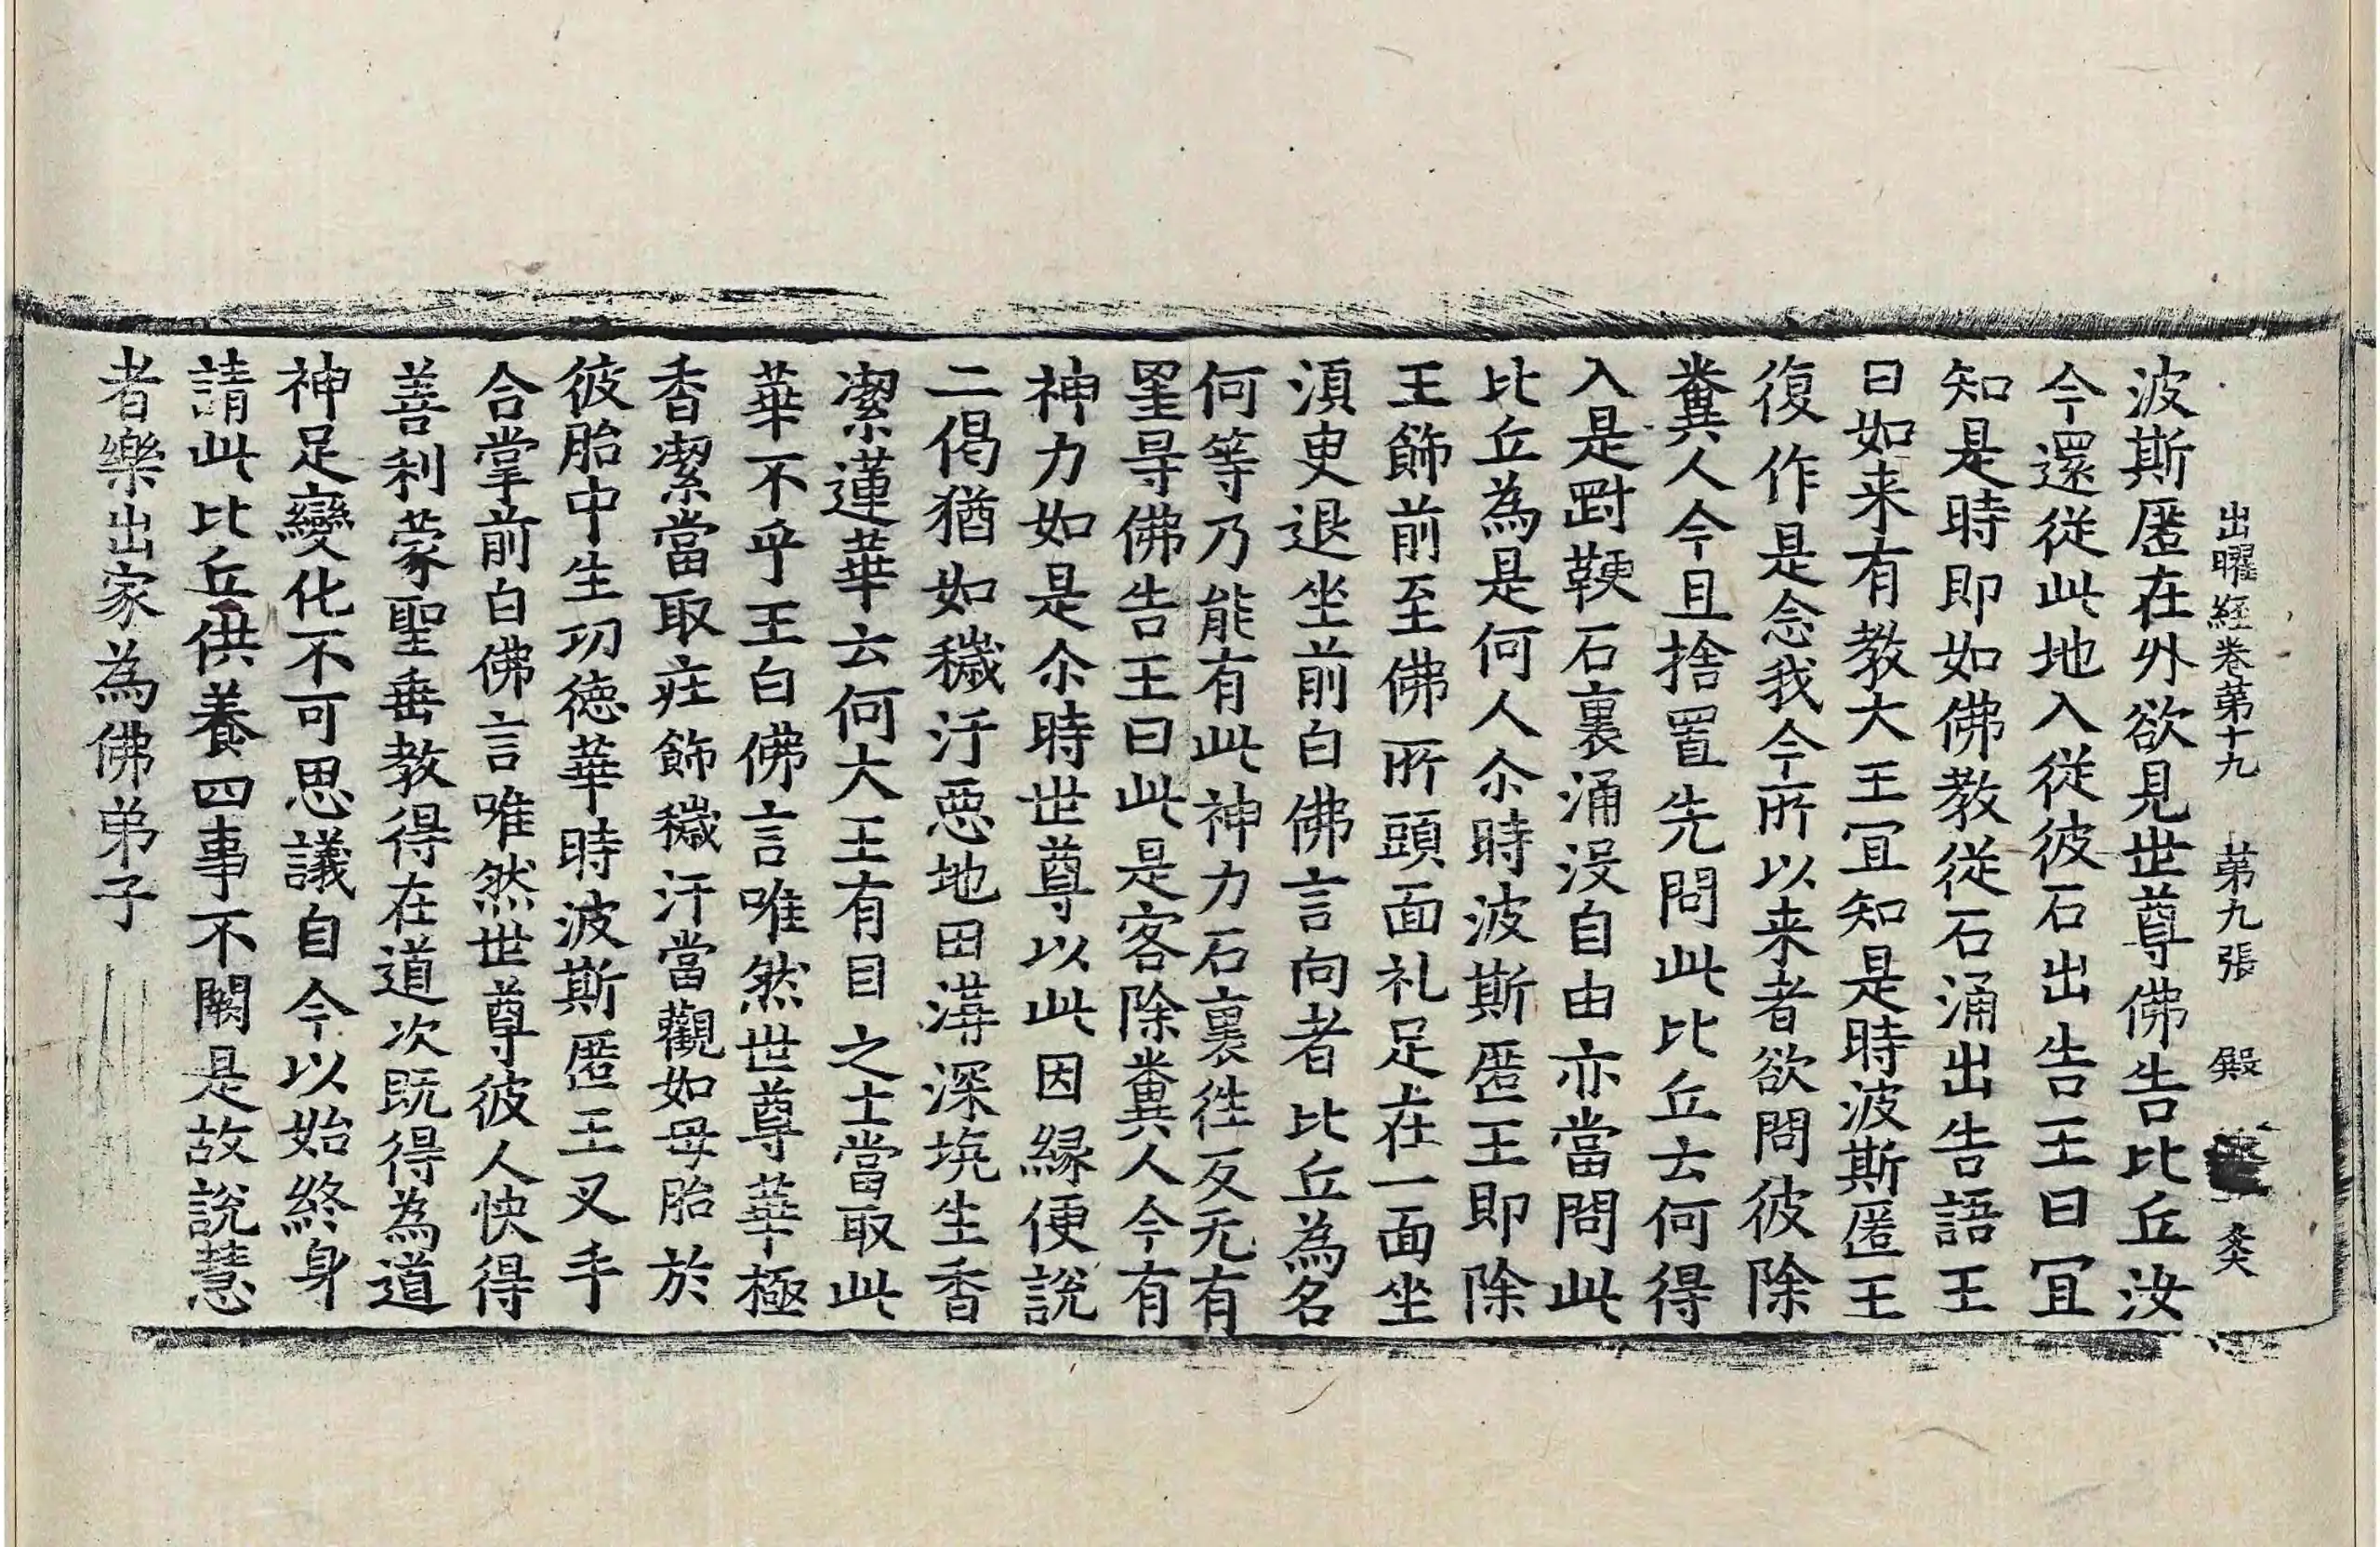 出曜経卷苐十九 苐九張 殿 灸
波斯匿在外欲見世尊佛告比丘汝
今還從此地入從彼石出告王曰冝
知是時即如佛教從石涌出告語王
曰如来有教大王冝知是時波斯匿王
復作是念我今所以来者欲問彼除
糞人今且捨置先問此比丘去何得
入是罸鞕石裏涌没自由亦當問此
比丘為是何人尒時波斯匿王即除
王飾前至佛所頭面礼足在一面坐
湏叟退坐前白佛言向者比丘為名
何等乃能有此神力石裏徃反无有
罣㝵佛告王曰此是客除糞人今有
神力如是尒時世尊以此因縁便説
二偈猶如穢汙惡地田溝深坑生香
潔蓮華云何大王有目之士當取此
華不乎王白佛言唯然世尊華極
香潔當取莊飾穢汙當觀如母胎於
彼胎中生功徳華時波斯匿王叉手
合掌前白佛言唯然世尊彼人快得
善利蒙聖垂教得在道次既得為道
神足變化不可思議自今以始終身
請此比丘供養四事不闕是故說慧
者樂出家為佛弟子